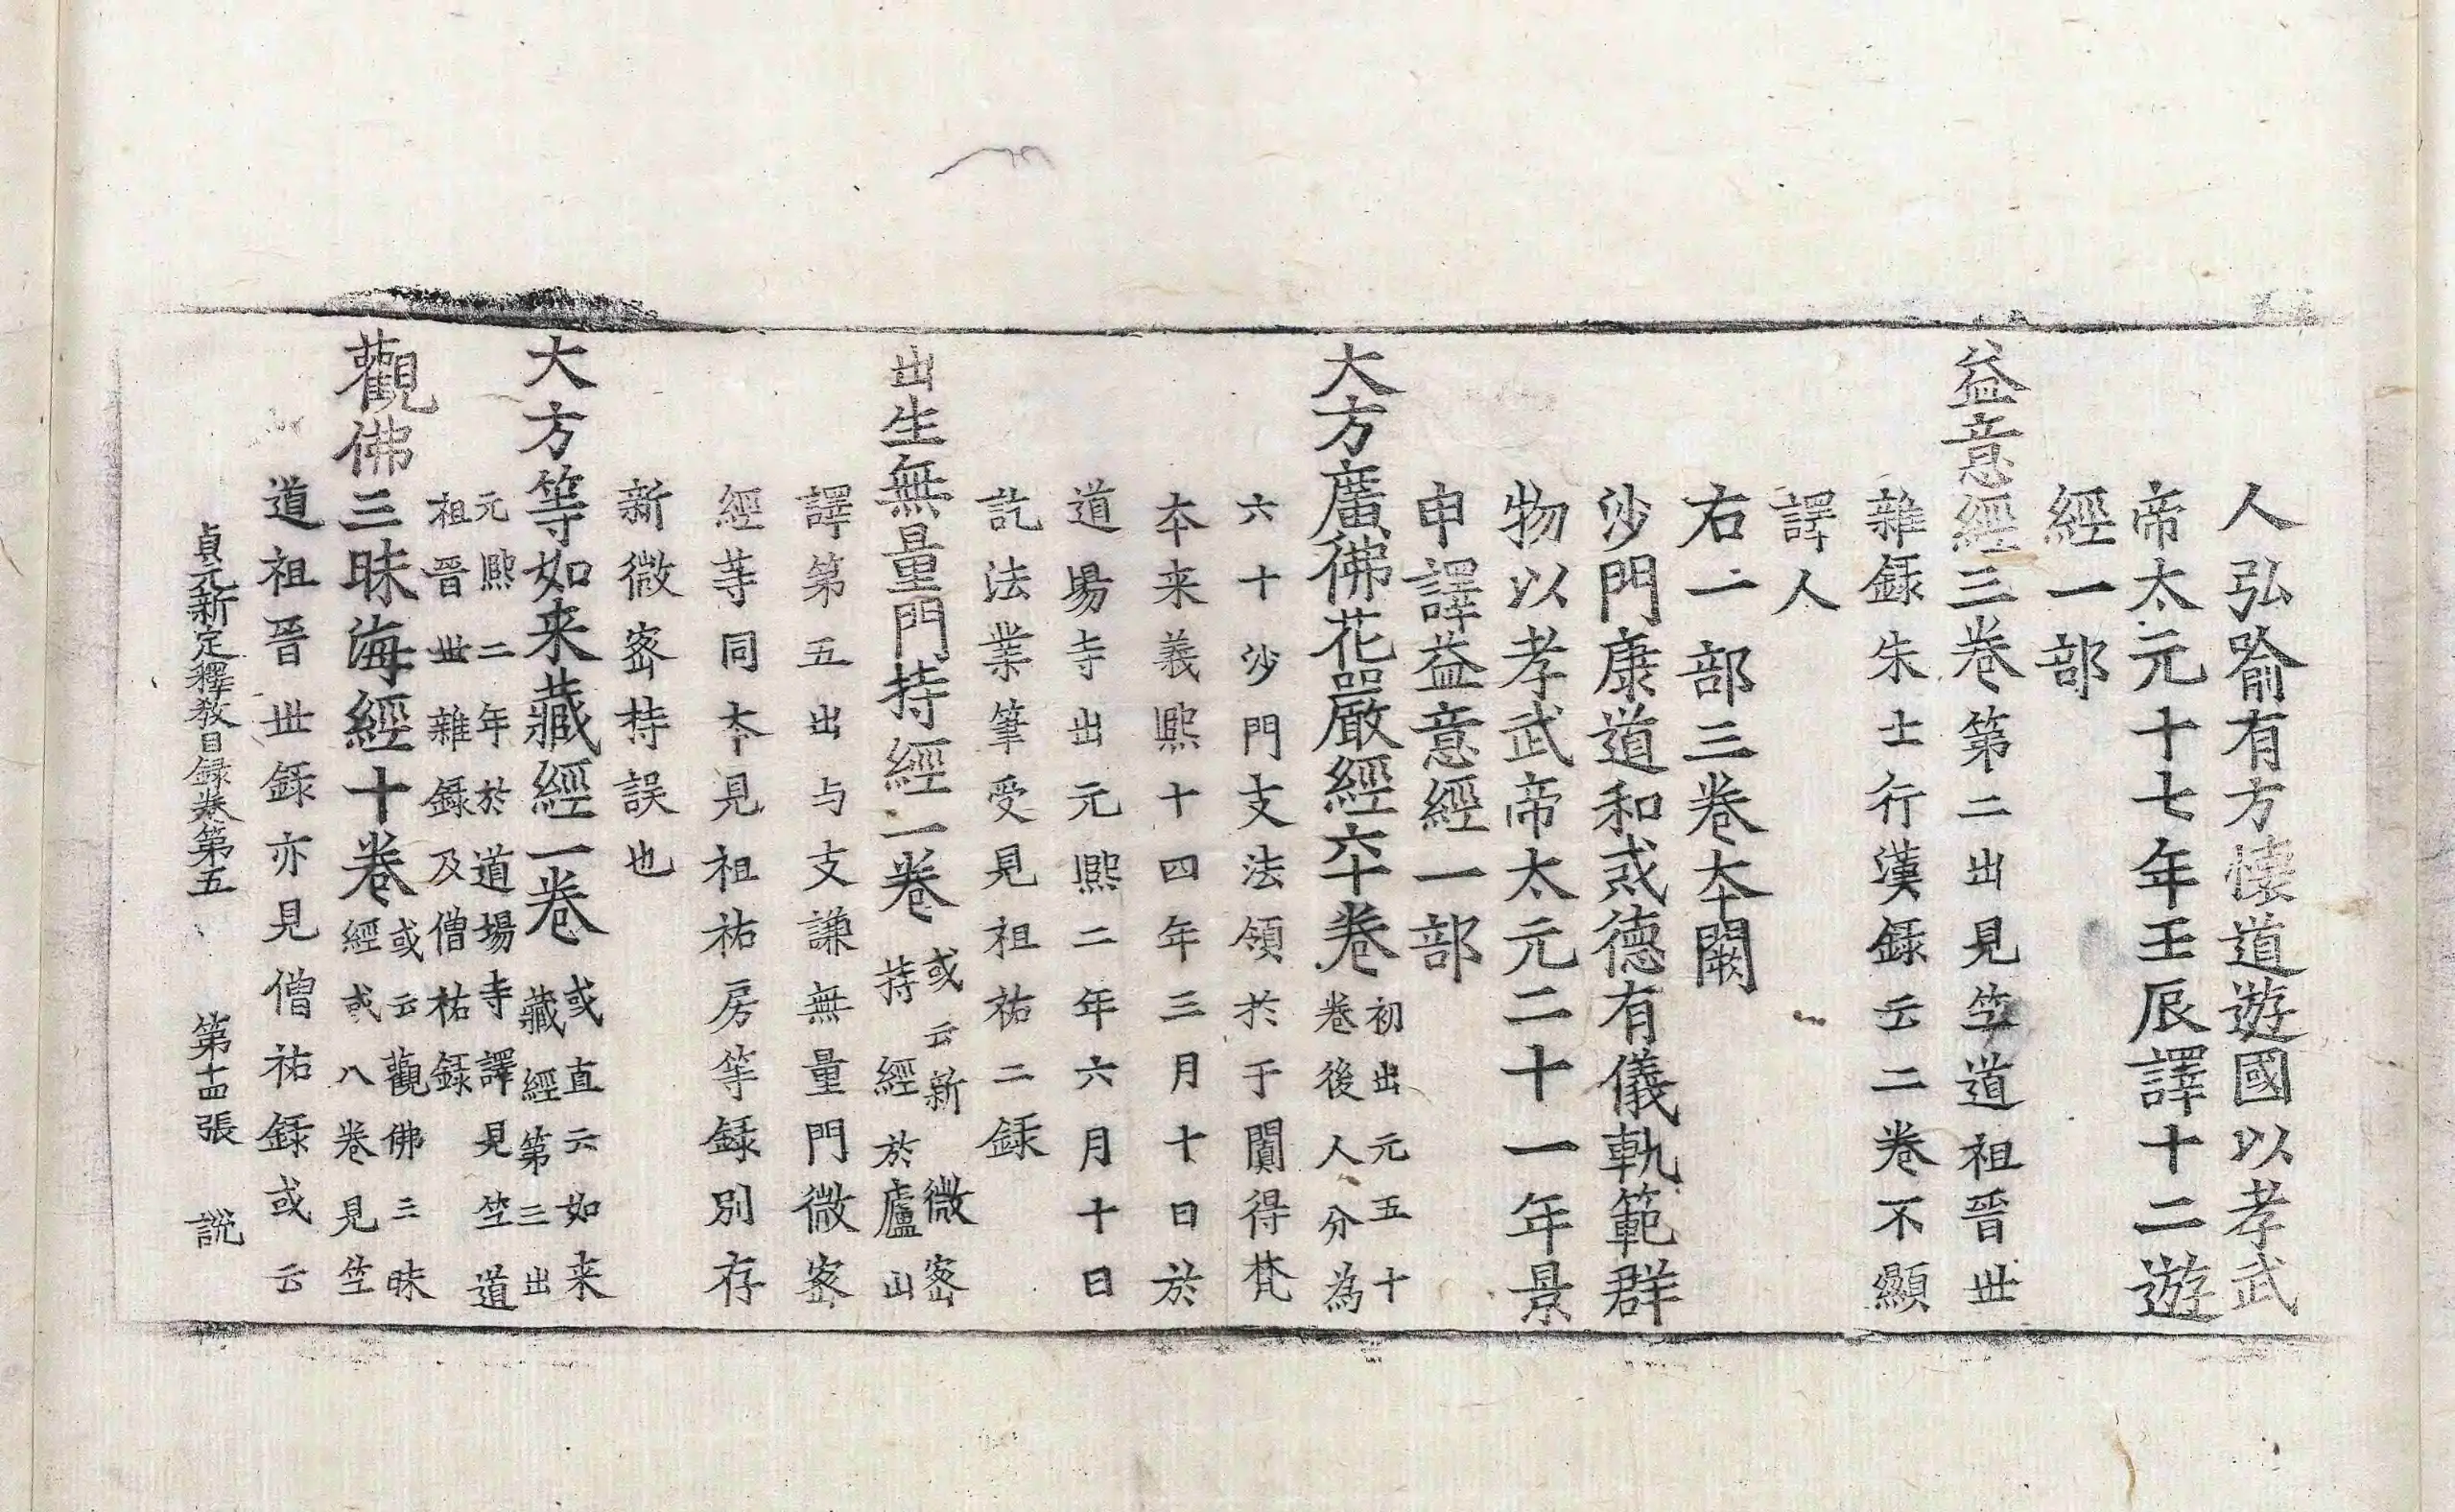 人弘喻有方懷道遊國以孝武
帝太元十七年壬辰譯十二遊
經一部
益意經三卷第二出見竺道祖晉世
雜録朱士行漢録云二卷不顯
譯人
右一部三卷夲闕
沙門康道和或德有儀軌範群
物以孝武帝太元二十一年景
申譯益意經一部
大方廣佛花嚴經六十卷初出元五十
卷後人分為
六十沙門支法領扵于闐得梵
夲来義熈十四年三月十日於
道場寺出元熈二年六月十日
訖法業筆受見祖祐二録
出生無量門持經一卷或云新微宻
持經於廬山
譯第五出与支謙無量門微宻
經等同夲見祖祐房等録別存
新微宻持誤也
大方等如来藏經一卷或直云如来
藏經第三出
元熈二年於道場寺譯見竺道
祖晉世雜録及僧祐録
觀佛三昧海經十卷或云觀佛三昧
經或八卷見竺
道祖晉世録亦見僧祐録或云
貞元新定釋教目録卷第五 第十四張 説